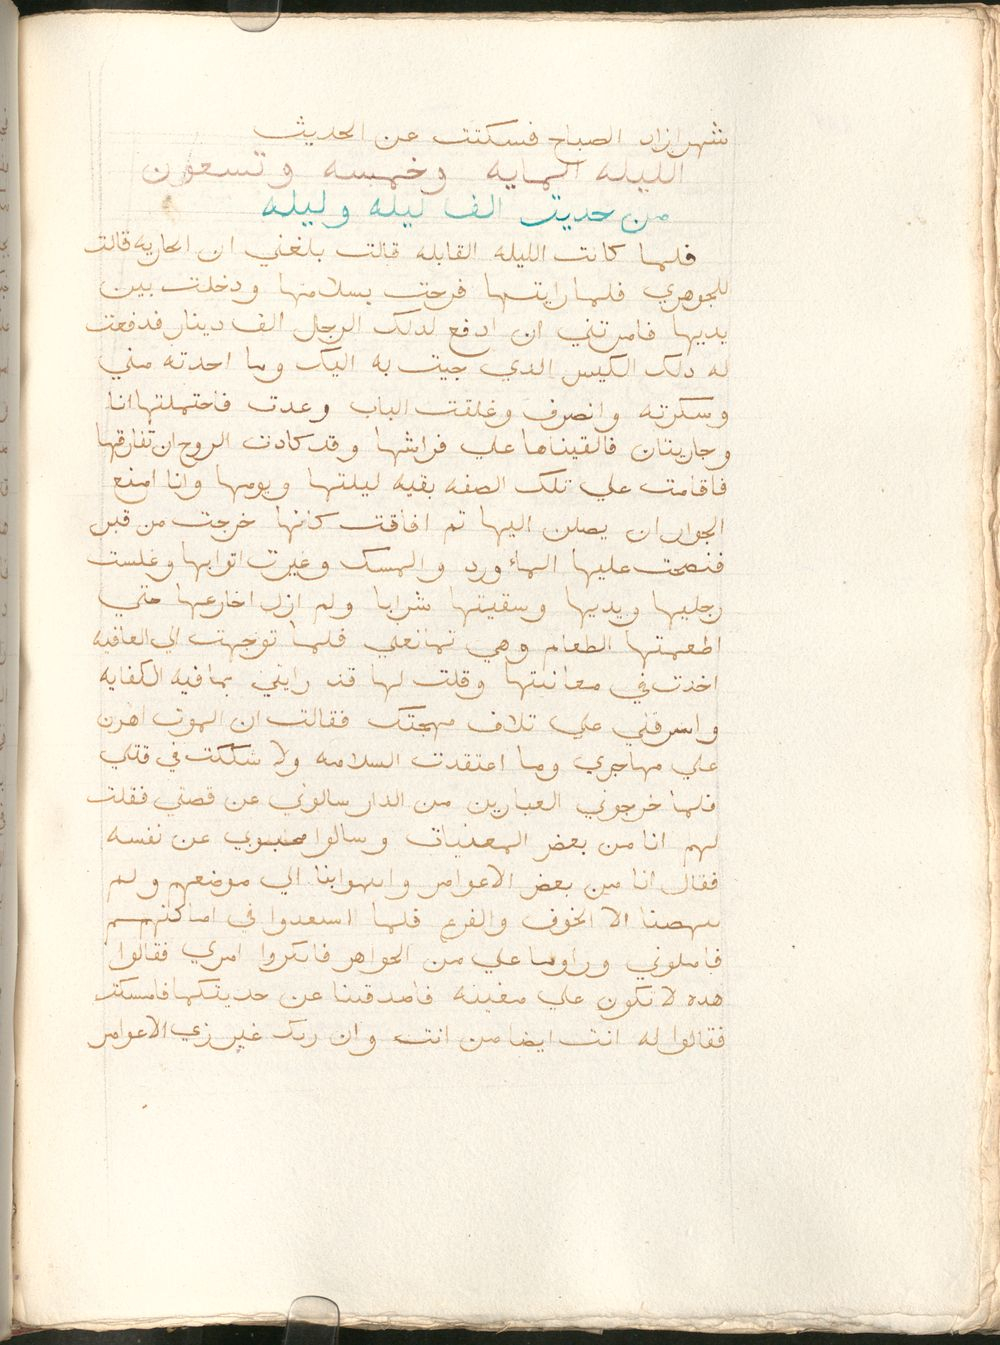 شهرازاد الصباح فسكتت عن الحديث
الليله المايه وخمسه وتسعون
من حديث الف ليله وليله
فلما كانت الليله القابله قالت بلغني ان الجاريه قالت
للجوهري فلما رايتها فرحت بسلامتها ودخلت بين
يديها فامرتني ان ادفع لدلك الرجل الف دينار فدفعت
له دلك الكيس الدي جيت به اليك وما احدته مني
وسكرته وانصرف وغلقت الباب وعدت فاحتملتها انا
وجاريتان فالقيناها علي فراشها وقد كادت الروح ان تفارقها
فاقامت علي تلك الصفه بقيه ليلتها ويومها وانا امنع
الجوار ان يصلن اليها تم افاقت كانها خرجت من قبر
فنضحت عليها الماء ورد والمسك وغيرت اتوابها وغلست
رجليها ويديها وسقيتها شرابا ولم ازل اخارعها حتي
اطعمتها الطعام وهي تمانعلي فلما توجهت الي العافيه
اخدت في معاتبتها وقلت لها قد رايتي بما فيه الكفايه
واسرفتي علي تلاف مهجتك فقالت ان الموت اهون
علي مهاجري وما اعتقدت السلامه ولا شككت في قتلي
فلما خرجوني العيارين من الدار سالوني عن قصتي فقلت
لهم انا من بعض المغنيات وسالوا محبوبي عن نفسه
فقال انا من بعض الاعوامر وانتهوا بنا الي موضعهم ولم
ينهضنا الا الخوف والفزع فلما استعدوا في اماكنهم
فاملوني وراوا ما علي من الجواهر فانكروا امري فقالوا
هده لا تكون علي مغينه فاصدقينا عن حديتكما فامسكت
فقالوا له انت ايضا من انت وان زيك غير زي الاعوامر